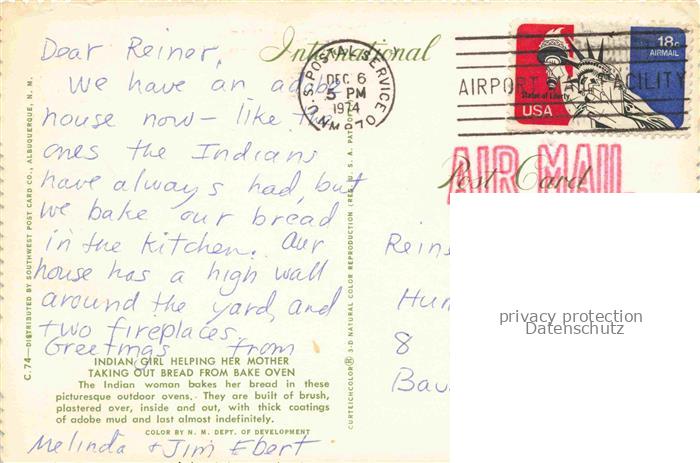 Dear Reiner,
We have an adobe
house now — like the
ones the Indians
have always had, but
we bake our bread
in the kitchen. Our
house has a high wall
around the yard, and
two fireplaces.
Greetings from
Melinda + Jim Ebert
International
Post Card
AIR MAIL
U.S. POSTAL SERVICE
DEC 6
5 PM
1974
AIRPORT MAIL FACILITY
18c
AIRMAIL
Statue of Liberty
USA
Rein
Hun
8
Bau
privacy protection
Datenschutz
C.74—DISTRIBUTED BY SOUTHWEST POST CARD CO., ALBUQUERQUE, N. M.
CURTEICHCOLOR® 3-D NATURAL COLOR REPRODUCTION (REG. U. S. A. PAT.
INDIAN GIRL HELPING HER MOTHER
TAKING OUT BREAD FROM BAKE OVEN
The Indian woman bakes her bread in these
picturesque outdoor ovens. They are built of brush,
plastered over, inside and out, with thick coatings
of adobe mud and last almost indefinitely.
COLOR BY N. M. DEPT. OF DEVELOPMENT